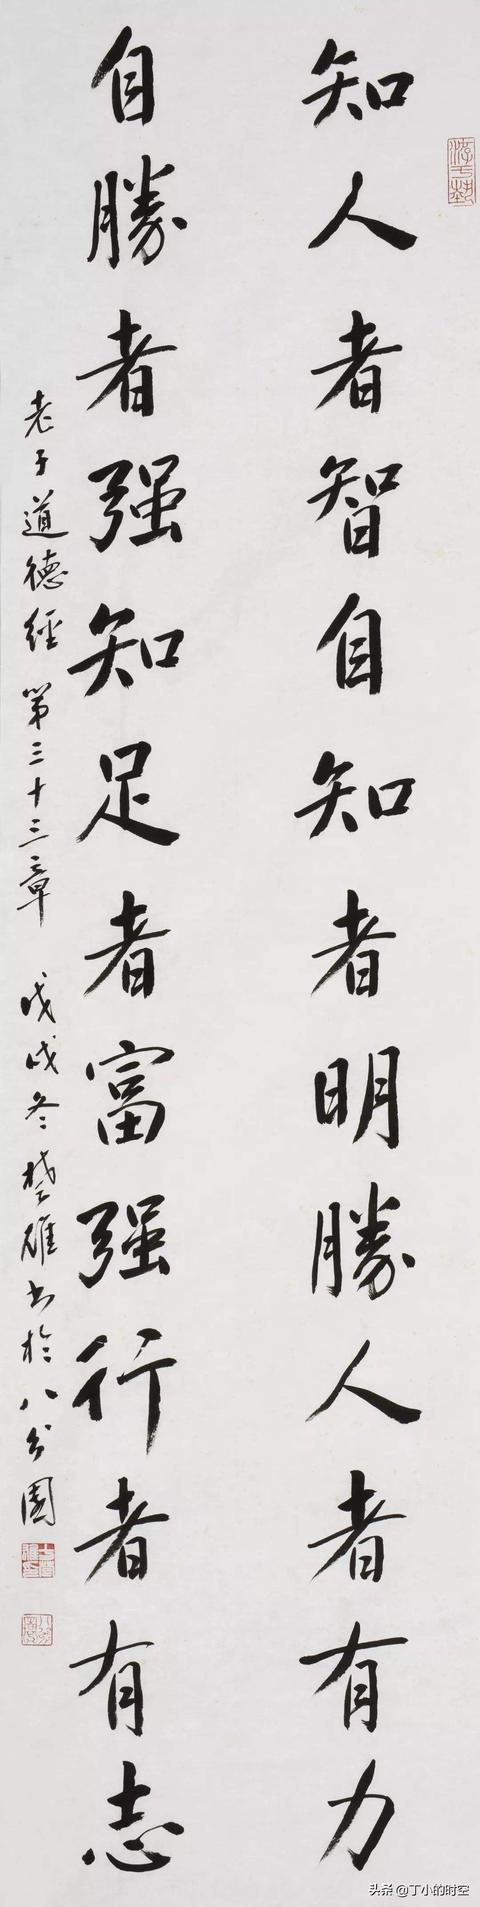 知人者智自知者明勝人者有力
自勝者强知足者富强行者有志
老子道德經第三十三章 戊戌冬楚雄书於八分園
游于藝
头条 @丁小的时空